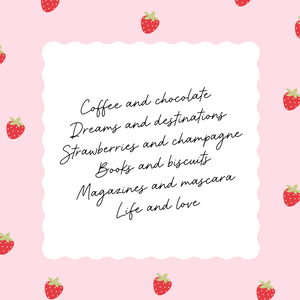 Coffee and chocolate
Dreams and destinations
Strawberries and champagne
Books and biscuits
Magazines and mascara
Life and love